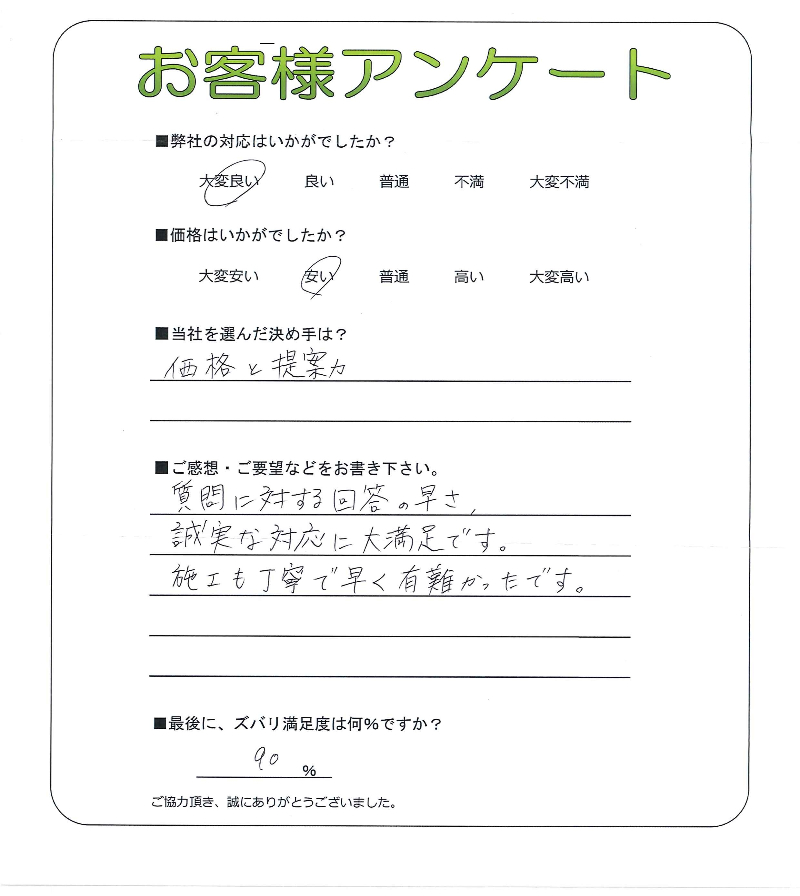 お客様アンケート
■弊社の対応はいかがでしたか？
大変良い 良い 普通 不満 大変不満
■価格はいかがでしたか？
大変安い 安い 普通 高い 大変高い
■当社を選んだ決め手は？
価格と提案力
■ご感想・ご要望などをお書き下さい。
質問に対する回答の早さ、
誠実な対応に大満足です。
施工も丁寧で早く有難かったです。
■最後に、ズバリ満足度は何%ですか？
90 %
ご協力頂き、誠にありがとうございました。